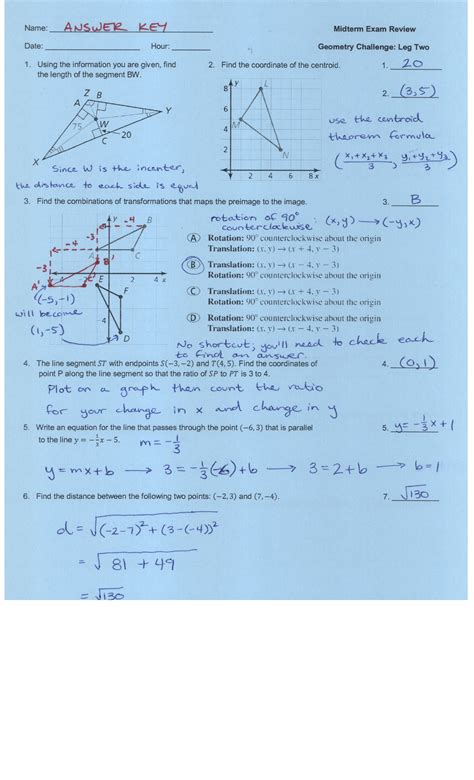 Name: ANSWER KEY
Midterm Exam Review
Date: Hour:
Geometry Challenge: Leg Two
1. Using the information you are given, find
the length of the segment BW.
Z B
A
Y
75 W
20
C
X
Since W is the incenter,
the distance to each side is equal
2. Find the coordinate of the centroid.
y
8
L
6
4
M
2
N
2 4 6 8 x
1. 20
2. (3,5)
use the centroid
theorem formula
(x₁+x₂+x₃/3, y₁+y₂+y₃/3)
3. Find the combinations of transformations that maps the preimage to the image.
3. B
y -4 B
-3
-4
A C
-3 B'
A' C' E 2 4 x
F
(-5,-1)
will become
(1,-5)
-4
D
rotation of 90°
counterclockwise: (x,y) → (-y,x)
A Rotation: 90° counterclockwise about the origin
Translation: (x, y) → (x + 4, y − 3)
B Translation: (x, y) → (x − 4, y − 3)
Rotation: 90° counterclockwise about the origin
C Translation: (x, y) → (x + 4, y − 3)
Rotation: 90° counterclockwise about the origin
D Rotation: 90° counterclockwise about the origin
Translation: (x, y) → (x − 4, y − 3)
No shortcut; you'll need to check each
to find an answer.
4. The line segment ST with endpoints S(−3, −2) and T(4, 5). Find the coordinates of
point P along the segment so that the ratio of SP to PT is 3 to 4.
4. (0,1)
Plot on a graph then count the ratio
for your change in x and change in y
5. Write an equation for the line that passes through the point (−6, 3) that is parallel
to the line y = −1/3x − 5.
m = -1/3
5. y = -1/3 x + 1
y = mx + b → 3 = -1/3(-6) + b → 3 = 2 + b → b = 1
6. Find the distance between the following two points: (−2, 3) and (7, −4).
7. √130
d = √(-2-7)² + (3-(-4))²
= √81 + 49
= √130